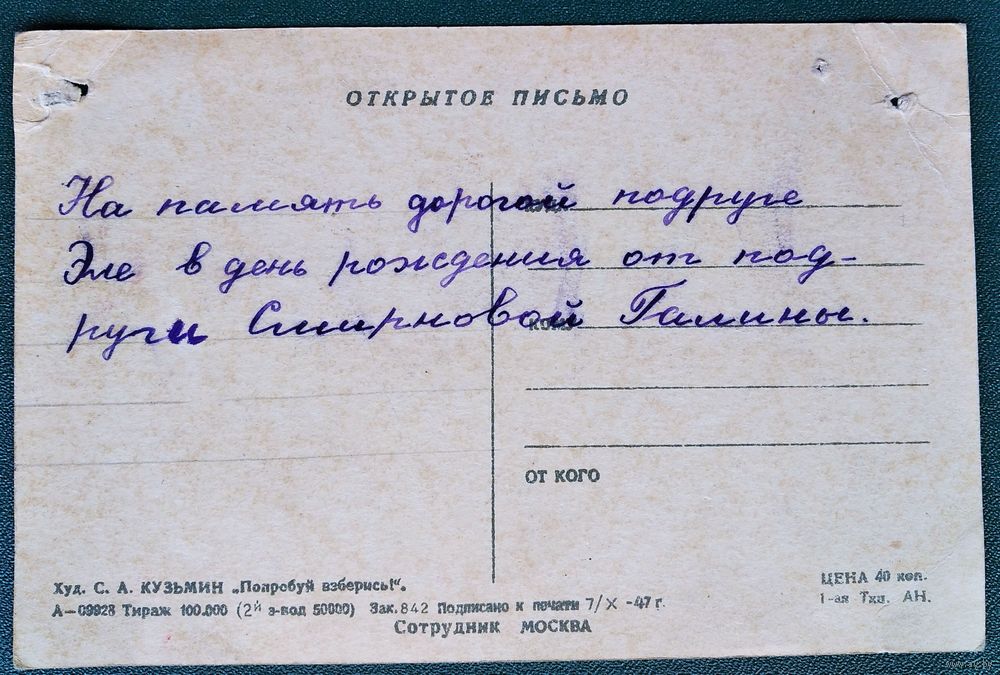 ОТКРЫТОЕ ПИСЬМО
На память дорогой подруге
Эле в день рождения от под-
руги Смирновой Галины.
ОТ КОГО
Худ. С. А. КУЗЬМИН „Попробуй взберись!“.
А—09928 Тираж 100.000 (2й з-вод 50000) Зак. 842 Подписано к печати 7/X -47 г.
Сотрудник МОСКВА
ЦЕНА 40 коп.
1-ая Тхп. АН.